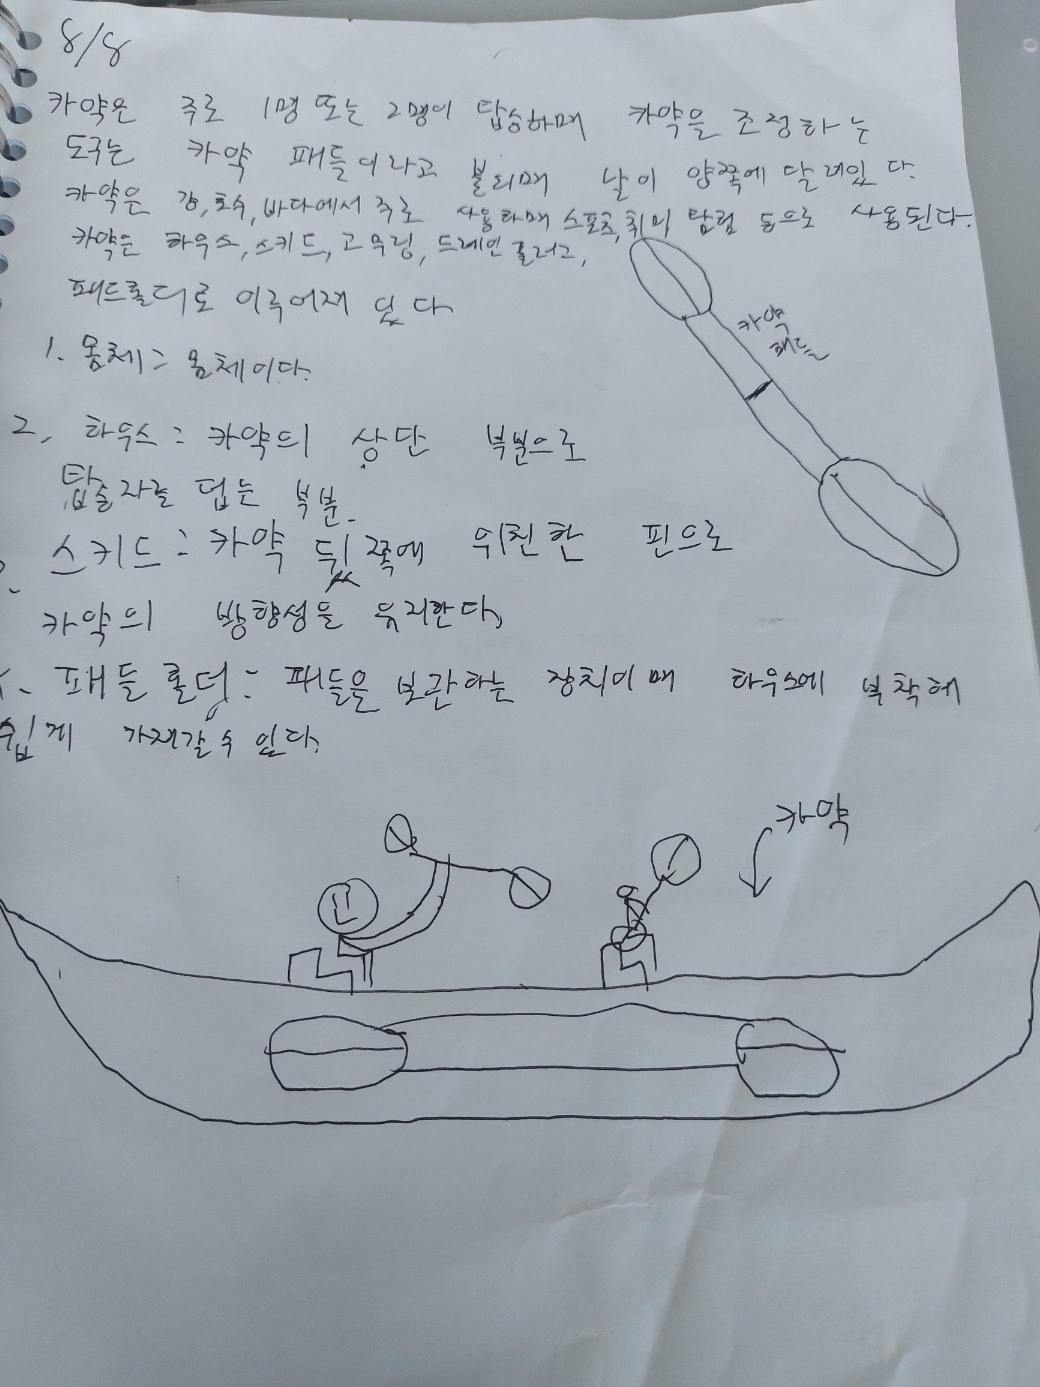 8/8
카약은 주로 1명 또는 2명이 탑승하며 카약을 조정하는
도구는 카약 패들이라고 불리며 날이 양쪽에 달려있다.
카약은 강, 호수, 바다에서 주로 사용하며 스포츠, 취미 탐험 등으로 사용된다.
카약은 하우스, 스키드, 고무링, 드레인 플러그,
패드롤더로 이루어져 있다
카약
패들
1. 몸체 : 몸체이다.
2. 하우스 : 카약의 상단 부분으로
탑승자를 덥는 부분.
스키드 : 카약 뒤쪽에 위친한 핀으로
카약의 방향성을 유지한다,
패들 롤더 : 패들을 보관하는 장치이며 하우스에 부착해
쉽게 가져갈 수 있다.
카약